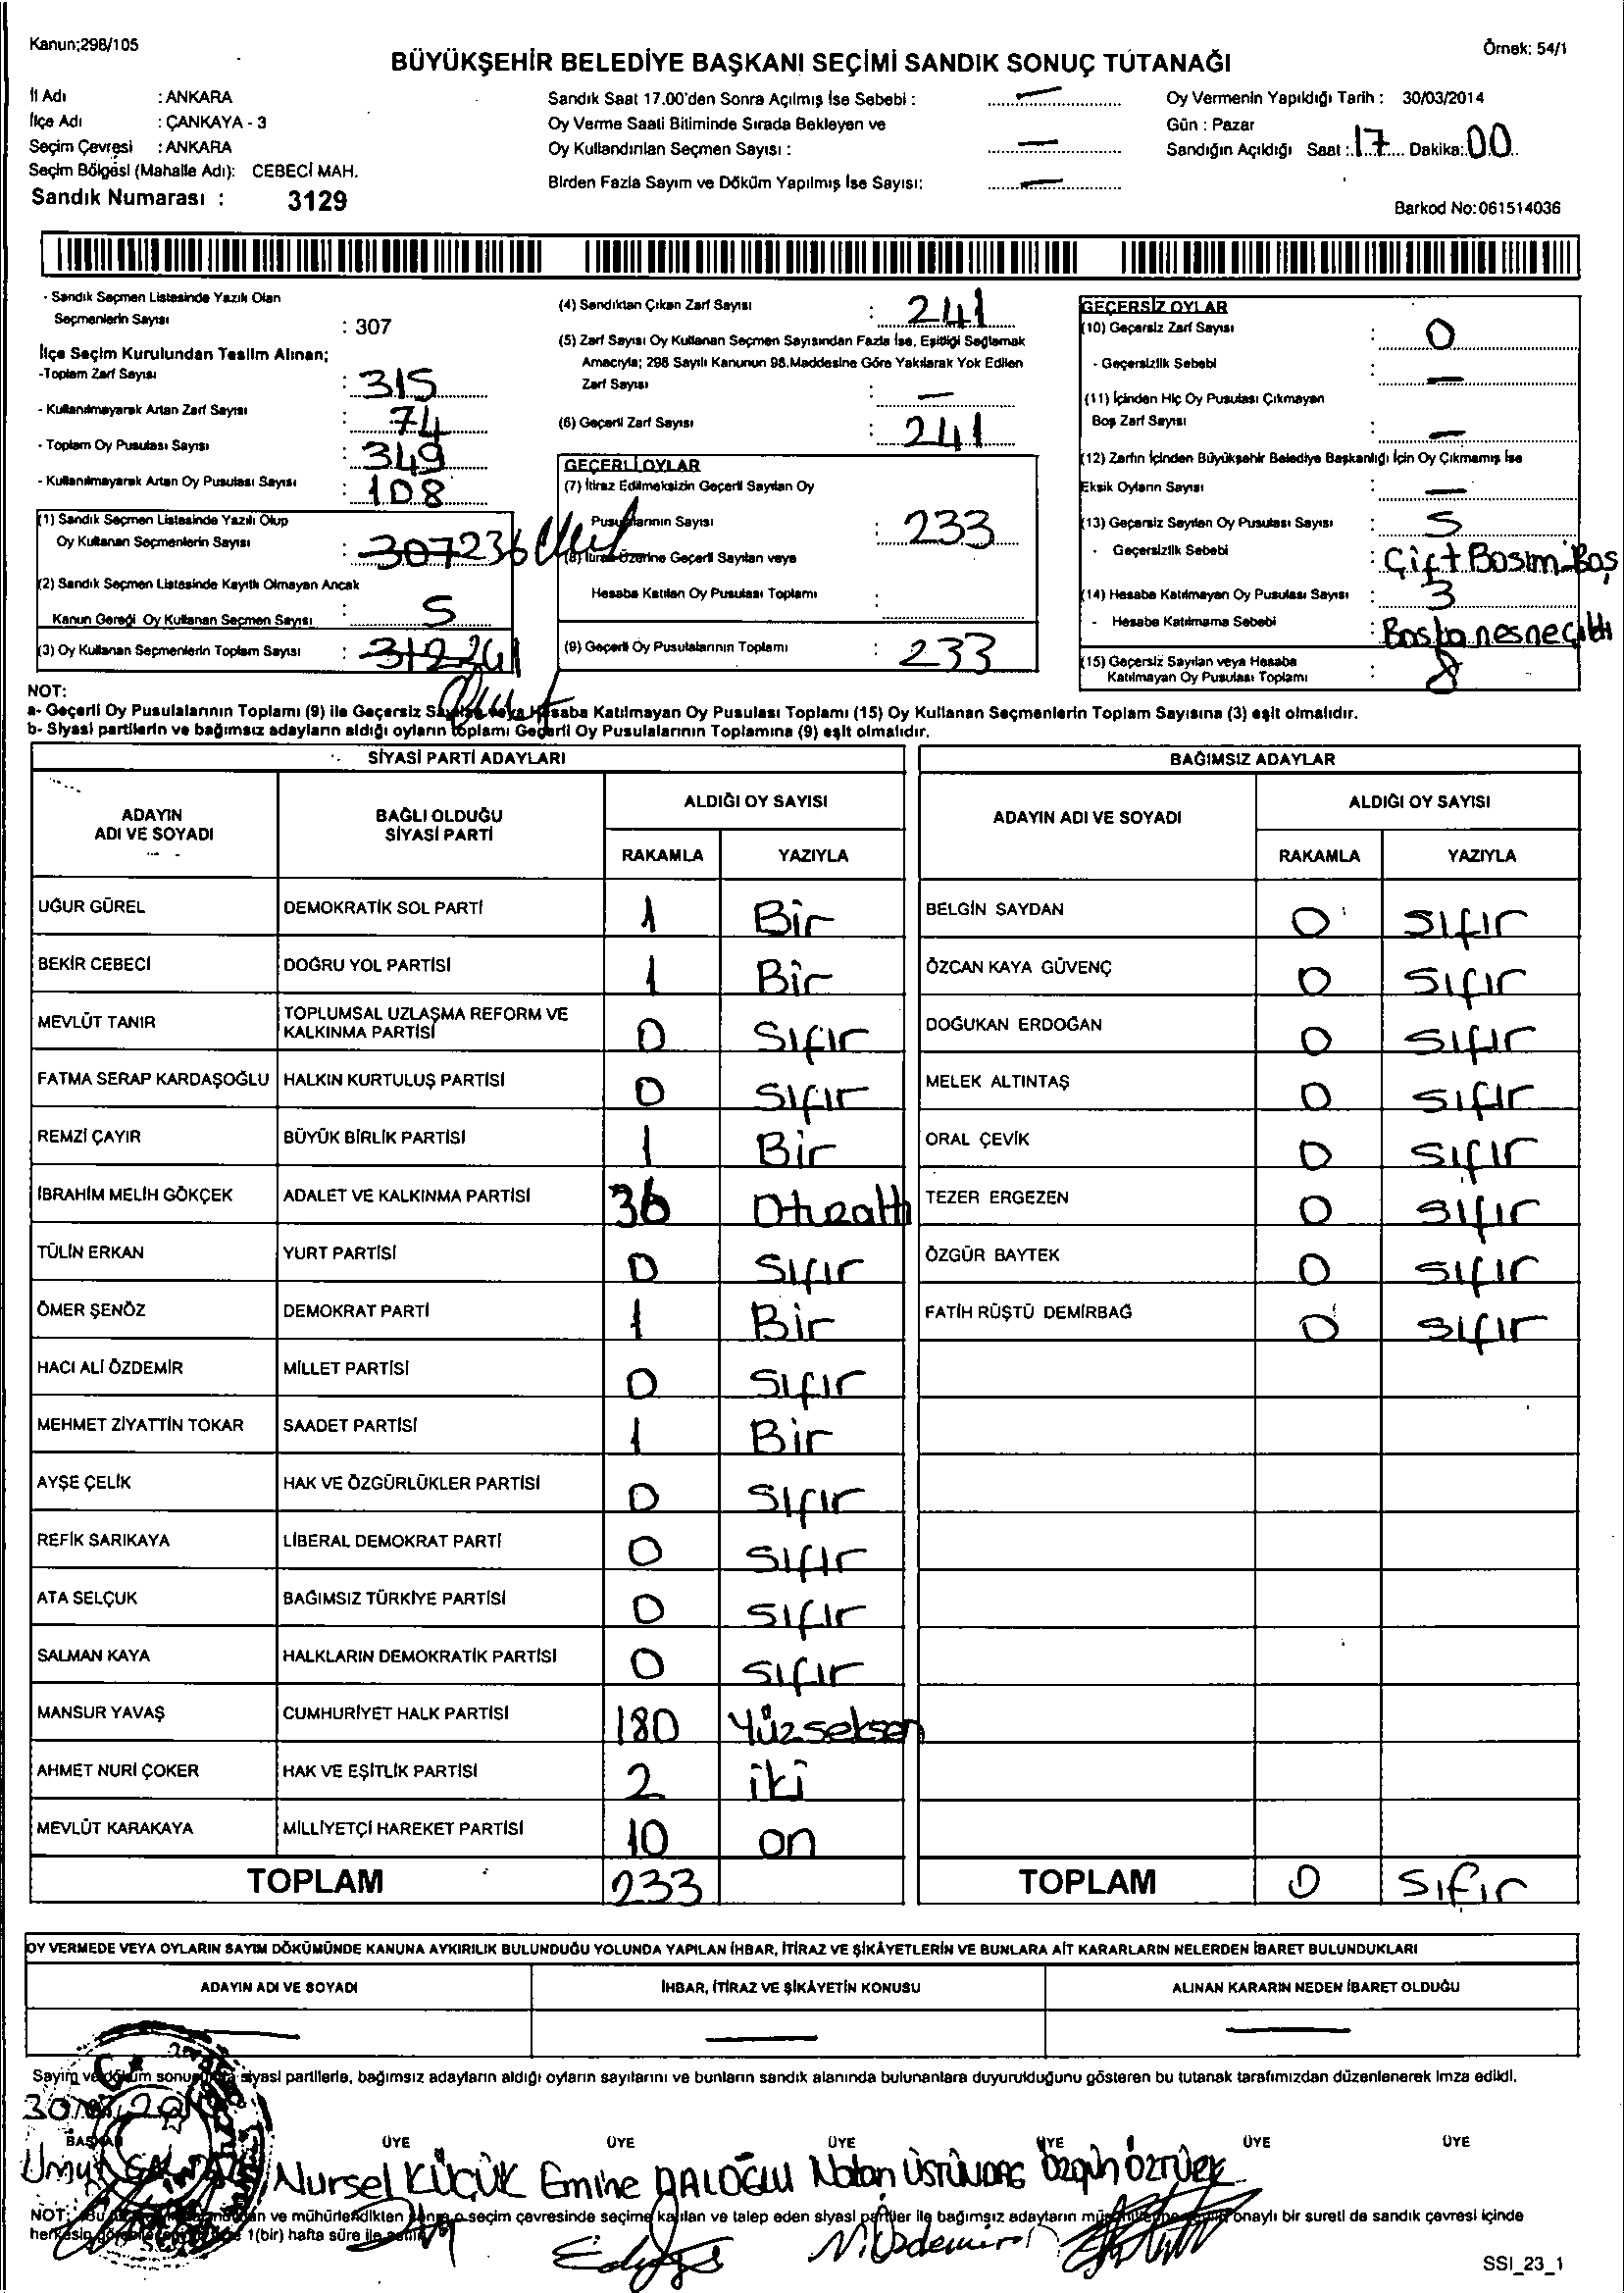 Kanun;298/105
Örnek: 54/1
BÜYÜKŞEHİR BELEDİYE BAŞKANI SEÇİMİ SANDIK SONUÇ TUTANAĞI
İl Adı : ANKARA
İlçe Adı : ÇANKAYA - 3
Seçim Çevresi : ANKARA
Seçim Bölgesi (Mahalle Adı): CEBECİ MAH.
Sandık Numarası : 3129
Sandık Saat 17.00'den Sonra Açılmış İse Sebebi : —
Oy Verme Saati Bitiminde Sırada Bekleyen ve
Oy Kullandırılan Seçmen Sayısı : —
Birden Fazla Sayım ve Döküm Yapılmış İse Sayısı: —
Oy Vermenin Yapıldığı Tarih : 30/03/2014
Gün : Pazar
Sandığın Açıldığı Saat : 17 Dakika: 00
Barkod No:061514036
- Sandık Seçmen Listesinde Yazılı Olan
Seçmenlerin Sayısı : 307
İlçe Seçim Kurulundan Teslim Alınan;
-Toplam Zarf Sayısı : 315
- Kullanılmayarak Artan Zarf Sayısı : 74
- Toplam Oy Pusulası Sayısı : 349
- Kullanılmayarak Artan Oy Pusulası Sayısı : 108
(1) Sandık Seçmen Listesinde Yazılı Olup
Oy Kullanan Seçmenlerin Sayısı : 307 236
(2) Sandık Seçmen Listesinde Kayıtlı Olmayan Ancak
Kanun Gereği Oy Kullanan Seçmen Sayısı : 5
(3) Oy Kullanan Seçmenlerin Toplam Sayısı : 312 241
(4) Sandıktan Çıkan Zarf Sayısı : 241
(5) Zarf Sayısı Oy Kullanan Seçmen Sayısından Fazla İse, Eşitliği Sağlamak
Amacıyla; 298 Sayılı Kanunun 98.Maddesine Göre Yakılarak Yok Edilen
Zarf Sayısı : —
(6) Geçerli Zarf Sayısı : 241
GEÇERLİ OYLAR
(7) İtiraz Edilmeksizin Geçerli Sayılan Oy
Pusulalarının Sayısı : 233
(8) İtiraz Üzerine Geçerli Sayılan veya
Hesaba Katılan Oy Pusulası Toplamı :
(9) Geçerli Oy Pusulalarının Toplamı : 233
GEÇERSİZ OYLAR
(10) Geçersiz Zarf Sayısı : 0
- Geçersizlik Sebebi : —
(11) İçinden Hiç Oy Pusulası Çıkmayan
Boş Zarf Sayısı : —
(12) Zarfın İçinden Büyükşehir Belediye Başkanlığı İçin Oy Çıkmamış İse
Eksik Oyların Sayısı : —
(13) Geçersiz Sayılan Oy Pusulası Sayısı : 5
- Geçersizlik Sebebi : Çift Basım-Boş
(14) Hesaba Katılmayan Oy Pusulası Sayısı : 3
- Hesaba Katılmama Sebebi : Başka nesne çıktı
(15) Geçersiz Sayılan veya Hesaba
Katılmayan Oy Pusulası Toplamı : 8
NOT:
a- Geçerli Oy Pusulalarının Toplamı (9) ile Geçersiz Sayılan veya Hesaba Katılmayan Oy Pusulası Toplamı (15) Oy Kullanan Seçmenlerin Toplam Sayısına (3) eşit olmalıdır.
b- Siyasi partilerin ve bağımsız adayların aldığı oyların toplamı Geçerli Oy Pusulalarının Toplamına (9) eşit olmalıdır.
SİYASİ PARTİ ADAYLARI
ADAYIN ADI VE SOYADI
BAĞLI OLDUĞU SİYASİ PARTİ
ALDIĞI OY SAYISI
RAKAMLA YAZIYLA
UĞUR GÜREL DEMOKRATİK SOL PARTİ 1 Bir
BEKİR CEBECİ DOĞRU YOL PARTİSİ 1 Bir
MEVLÜT TANIR TOPLUMSAL UZLAŞMA REFORM VE KALKINMA PARTİSİ 0 Sıfır
FATMA SERAP KARDAŞOĞLU HALKIN KURTULUŞ PARTİSİ 0 Sıfır
REMZİ ÇAYIR BÜYÜK BİRLİK PARTİSİ 1 Bir
İBRAHİM MELİH GÖKÇEK ADALET VE KALKINMA PARTİSİ 36 Otuzaltı
TÜLİN ERKAN YURT PARTİSİ 0 Sıfır
ÖMER ŞENÖZ DEMOKRAT PARTİ 1 Bir
HACI ALİ ÖZDEMİR MİLLET PARTİSİ 0 Sıfır
MEHMET ZİYATTİN TOKAR SAADET PARTİSİ 1 Bir
AYŞE ÇELİK HAK VE ÖZGÜRLÜKLER PARTİSİ 0 Sıfır
REFİK SARIKAYA LİBERAL DEMOKRAT PARTİ 0 Sıfır
ATA SELÇUK BAĞIMSIZ TÜRKİYE PARTİSİ 0 Sıfır
SALMAN KAYA HALKLARIN DEMOKRATİK PARTİSİ 0 Sıfır
MANSUR YAVAŞ CUMHURİYET HALK PARTİSİ 180 Yüzseksen
AHMET NURİ ÇOKER HAK VE EŞİTLİK PARTİSİ 2 iki
MEVLÜT KARAKAYA MİLLİYETÇİ HAREKET PARTİSİ 10 on
TOPLAM 233
BAĞIMSIZ ADAYLAR
ADAYIN ADI VE SOYADI
ALDIĞI OY SAYISI
RAKAMLA YAZIYLA
BELGİN SAYDAN 0 Sıfır
ÖZCAN KAYA GÜVENÇ 0 Sıfır
DOĞUKAN ERDOĞAN 0 Sıfır
MELEK ALTINTAŞ 0 Sıfır
ORAL ÇEVİK 0 Sıfır
TEZER ERGEZEN 0 Sıfır
ÖZGÜR BAYTEK 0 Sıfır
FATİH RÜŞTÜ DEMİRBAĞ 0 Sıfır
TOPLAM 0 Sıfır
OY VERMEDE VEYA OYLARIN SAYIM DÖKÜMÜNDE KANUNA AYKIRILIK BULUNDUĞU YOLUNDA YAPILAN İHBAR, İTİRAZ VE ŞİKÂYETLERİN VE BUNLARA AİT KARARLARIN NELERDEN İBARET BULUNDUKLARI
ADAYIN ADI VE SOYADI İHBAR, İTİRAZ VE ŞİKÂYETİN KONUSU ALINAN KARARIN NEDEN İBARET OLDUĞU
— — —
Sayım ve döküm sonucunda siyasi partilerle, bağımsız adayların aldığı oyların sayılarını ve bunların sandık alanında bulunanlara duyurulduğunu gösteren bu tutanak tarafımızdan düzenlenerek imza edildi.
BAŞKAN ÜYE ÜYE ÜYE ÜYE ÜYE ÜYE
Umut Nursel KÜÇÜK Emine Nalan ÜSTÜNDAĞ Özgün ÖZTÜRK
NOT: ve mühürlendikten sonra o seçim çevresinde seçime katılan ve talep eden siyasi partiler ile bağımsız adayların onaylı bir sureti de sandık çevresi içinde
herkesin 1(bir) hafta süre ile asılır.
N.Özdemirel
SSI_23_1